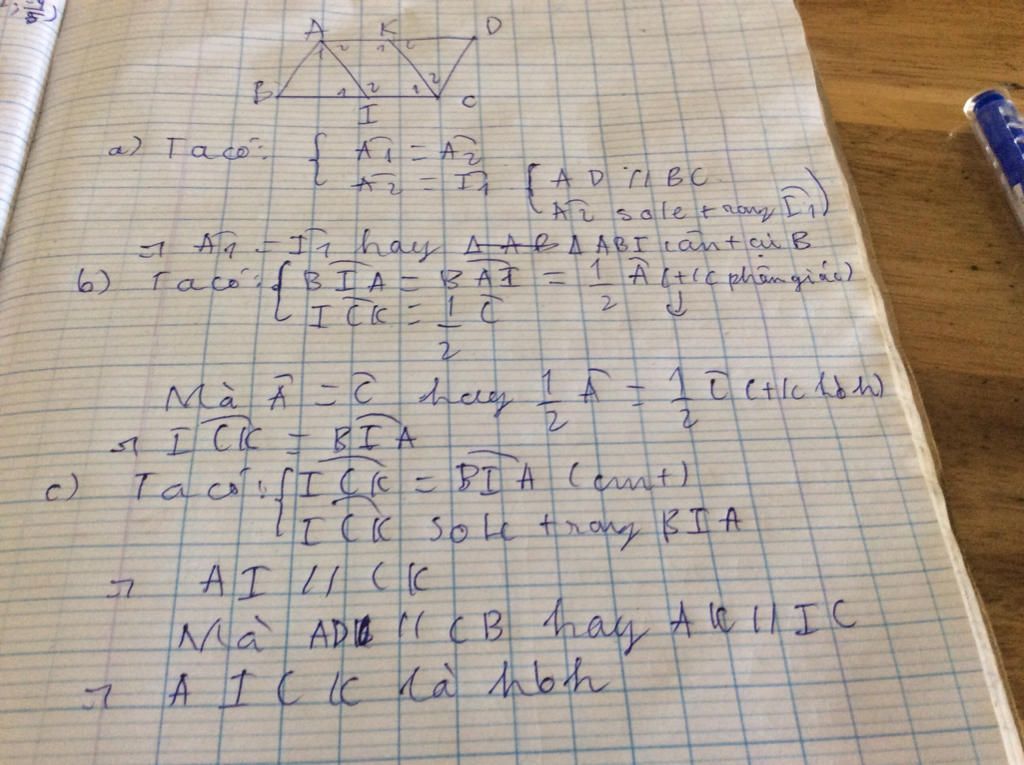 A K D
1 2 1 2
B 1 2 1 2 C
I
a) Ta có: { Â1 = Â2
Â2 = Î1 ( AD // BC
Â2 sole trong Î1 )
=> Â1 = Î1 hay ΔABI cân tại B
b) Ta có: { BÎA = BÂI = 1/2 Â (t/c phân giác)
IĈK = 1/2 Ĉ ↓
Mà Â = Ĉ hay 1/2 Â = 1/2 Ĉ (t/c hbh)
=> IĈK = BÎA
c) Ta có: { IĈK = BÎA (cmt)
IĈK sole trong BIA
=> AI // CK
Mà AD // CB hay AK // IC
=> AICK là hbh